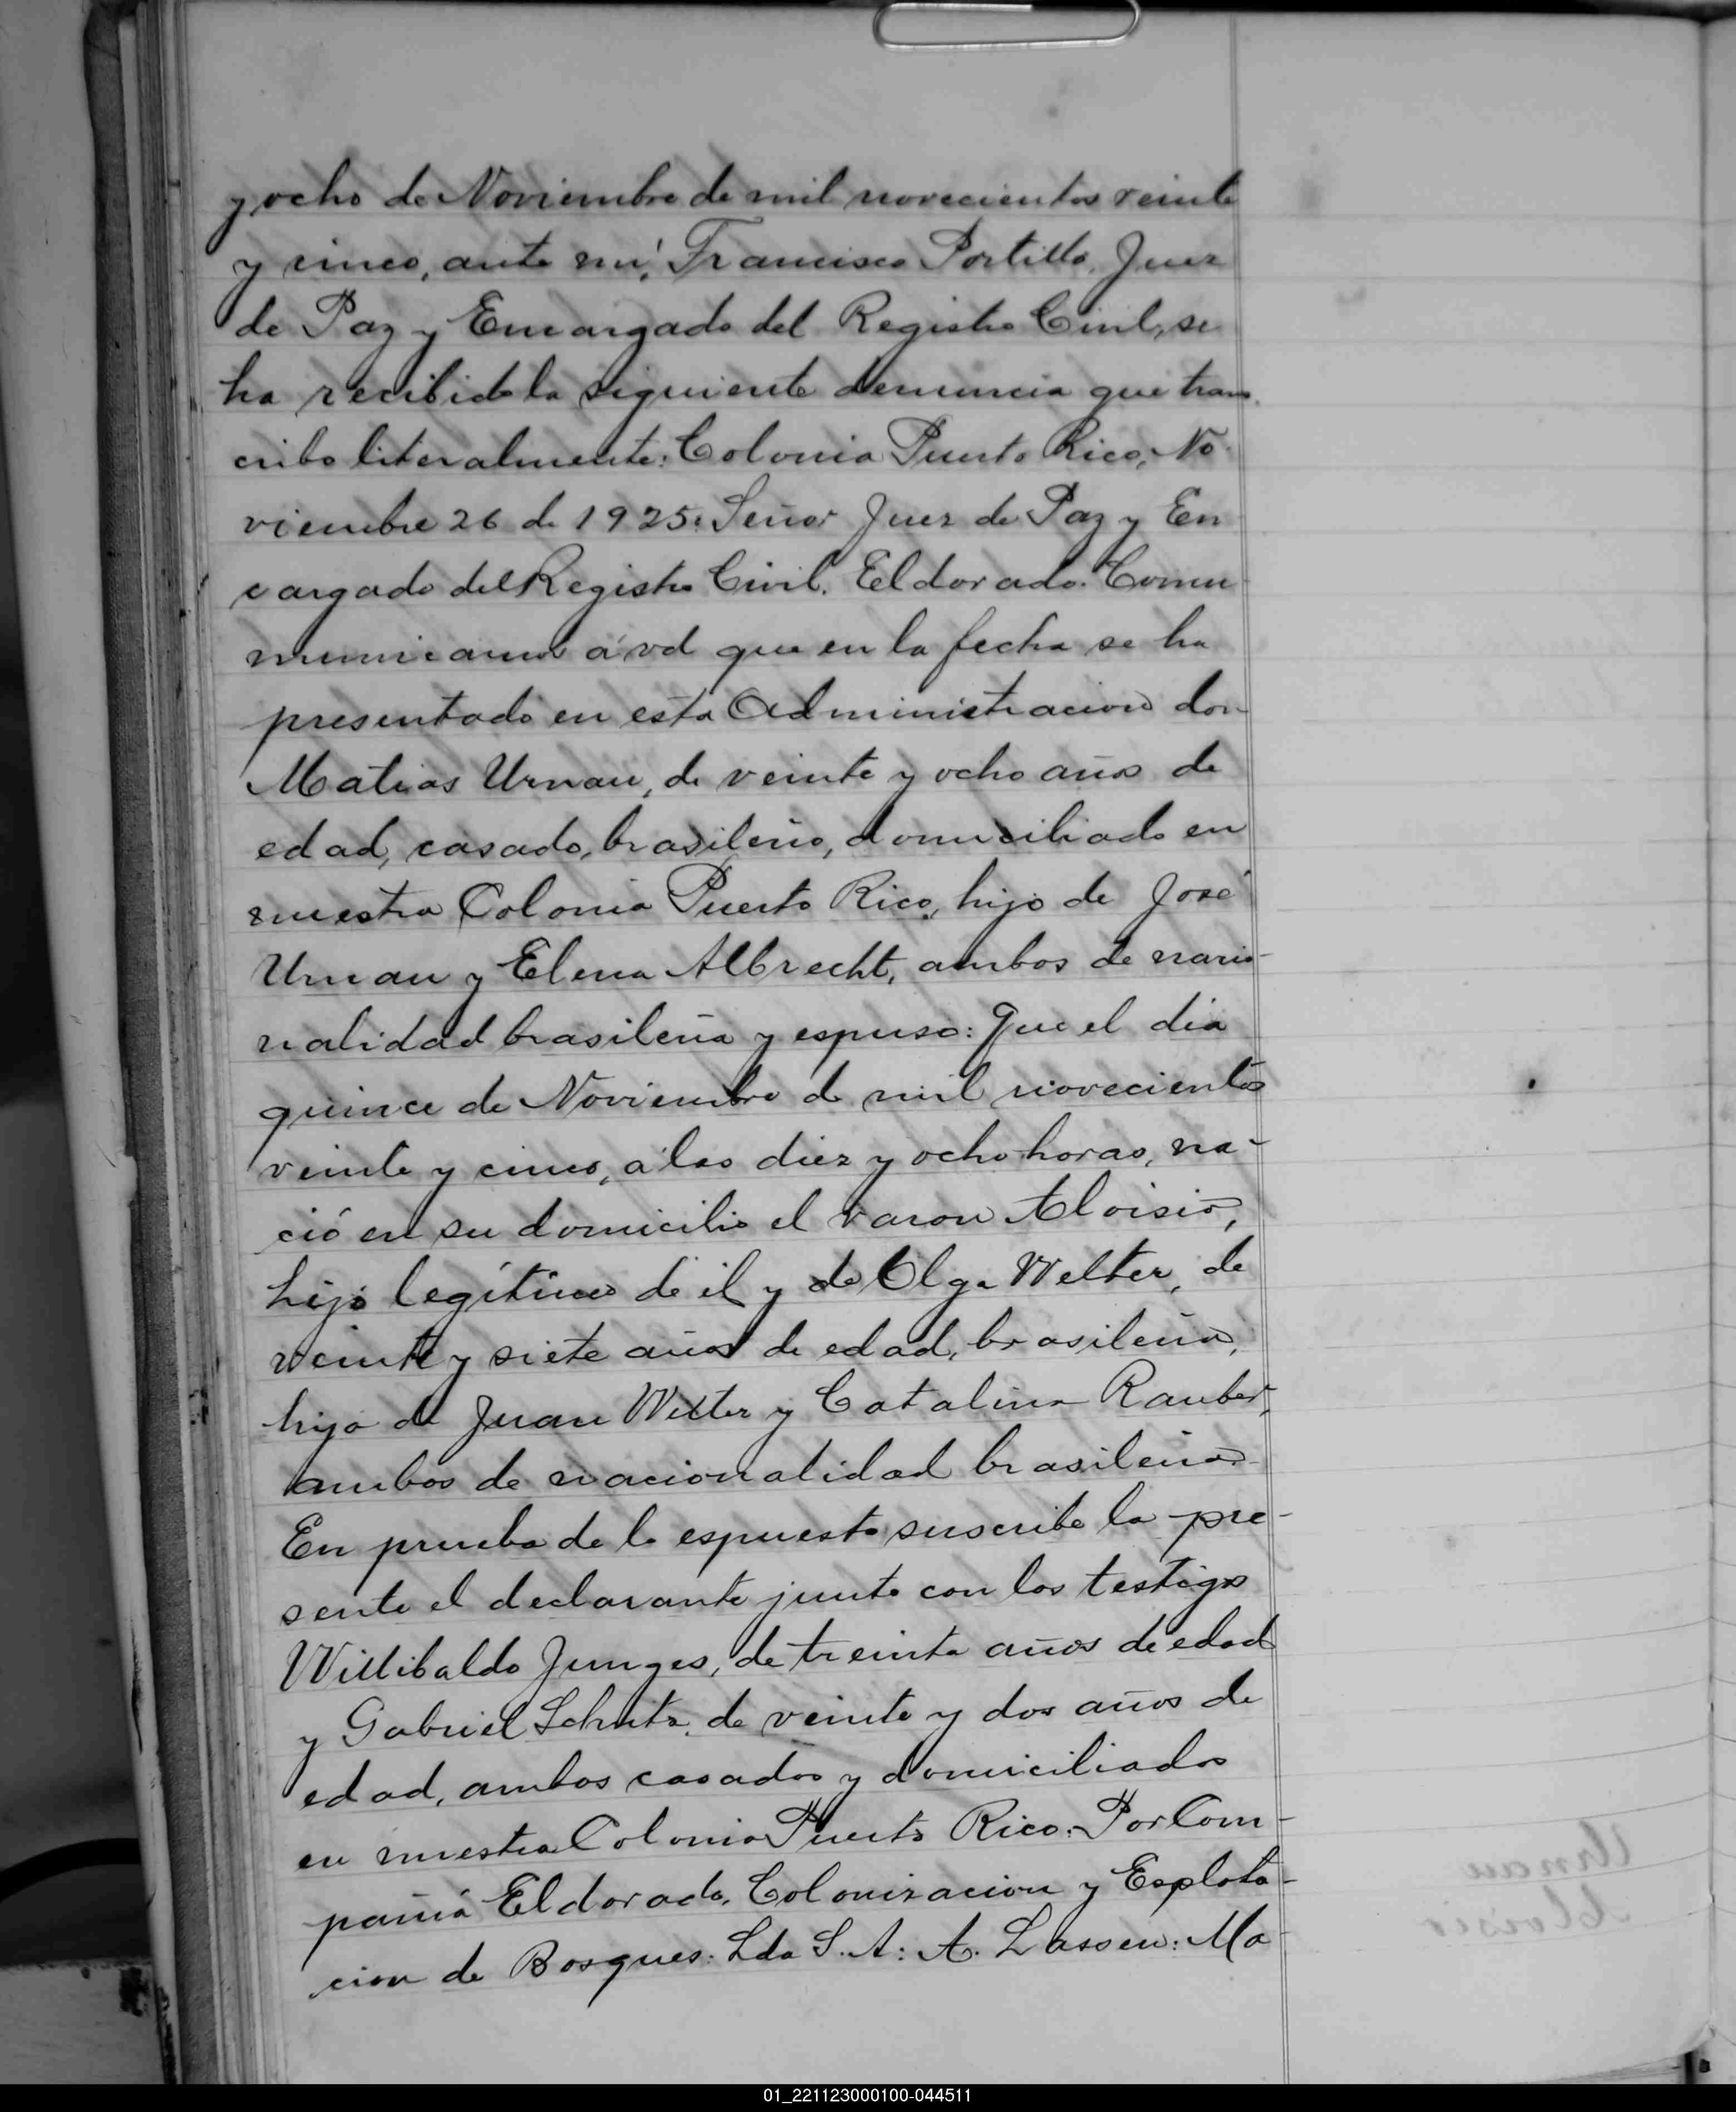 y ocho de Noviembre de mil novecientos veinte
y cinco, ante mí, Francisco Portillo, Juez
de Paz y Encargado del Registro Civil, se
ha recibido la siguiente denuncia que trans
cribo literalmente: Colonia Puerto Rico, No
viembre 26 de 1925. Señor Juez de Paz y En
cargado del Registro Civil. Eldorado. Comu
municamos á vd que en la fecha se ha
presentado en esta Administracion don
Matias Urnau, de veinte y ocho años de
edad, casado, brasileño, domiciliado en
nuestra Colonia Puerto Rico, hijo de José
Urnau y Elena Albrecht, ambos de nacio-
nalidad brasileña y espuso: Que el dia
quince de Noviembre de mil novecientos
veinte y cinco, a las diez y ocho horas, na-
ció en su domicilio el varon Aloisio,
hijo legítimo de él y de Olga Welter, de
veinte y siete años de edad, brasileña,
hija de Juan Welter y Catalina Rauber,
ambos de nacionalidad brasileña.
En prueba de lo espuesto suscribe la pre-
sente el declarante junto con los testigos
Willibaldo Junges, de treinta años de edad
y Gabriel Schutz, de veinte y dos años de
edad, ambos casados y domiciliados
en nuestra Colonia Puerto Rico. Por Com-
pañiá Eldorado, Colonizacion y Esplota-
cion de Bosques: Lda S. A: A. Lassen: Ma
Urnau
Aloisio
01_221123000100-044511